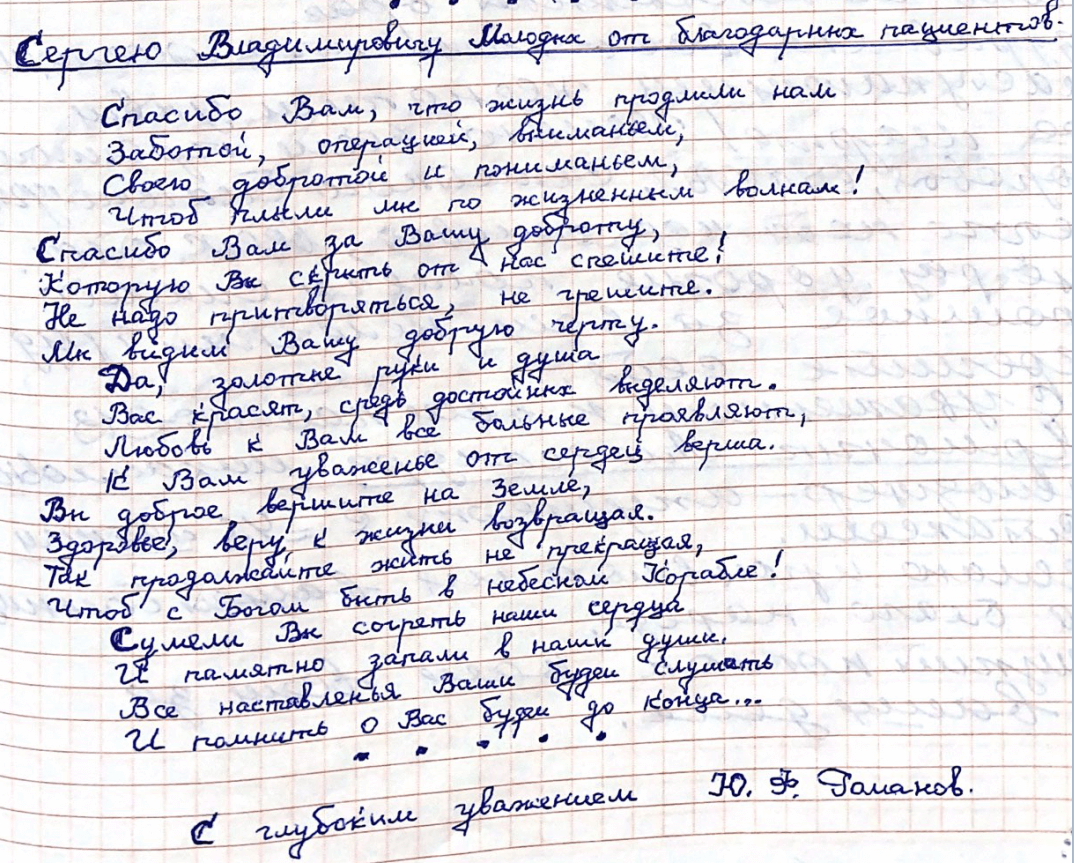 Сергею Владимировичу Молодых от благодарных пациентов.
Спасибо Вам, что жизнь продлили нам
Заботой, операцией, вниманьем,
Своею добротой и пониманьем,
Чтоб плыли мы по жизненным волнам!
Спасибо Вам за Вашу доброту,
Которую Вы скрыть от нас спешите!
Не надо притворяться, не грешите.
Мы видим Вашу добрую черту.
Да, золотые руки и душа
Вас красят, средь достойных выделяют.
Любовь к Вам все больные проявляют,
К Вам уваженье от сердец верша.
Вы доброе вершите на Земле,
Здоровье, веру, к жизни возвращая.
Так продолжайте жить не прекращая,
Чтоб с Богом быть в небесном Корабле!
Сумели Вы согреть наши сердца
И памятно запали в наши души.
Все наставленья Ваши будем слушать
И помнить о Вас будем до конца...
С глубоким уважением Ю. Ф. Романов.